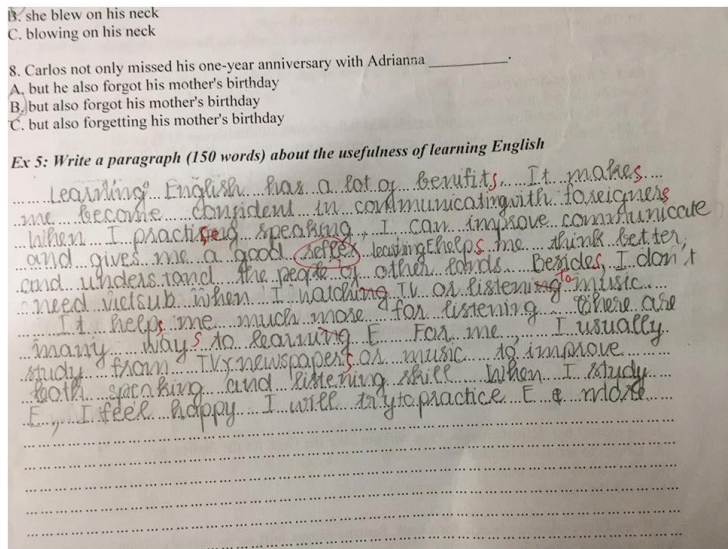 B. she blew on his neck
C. blowing on his neck
8. Carlos not only missed his one-year anniversary with Adrianna ____________.
A. but he also forgot his mother's birthday
B. but also forgot his mother's birthday
C. but also forgetting his mother's birthday
Ex 5: Write a paragraph (150 words) about the usefulness of learning English
Learning English has a lot of benifits. It makes
me become confident in communicating with foreigners
When I practising speaking, I can improve communicate
and gives me a good reflex learning E helps me think better,
and understand the people of other lands. Besides, I don't
need vietsub when I watching TV or listening to music
It helps me much more for listening. There are
many ways to learning E For me, I usually
study from TV, newspapers or music to improve
both speaking and listening skill When I study
E, I feel happy I will try to practice E more